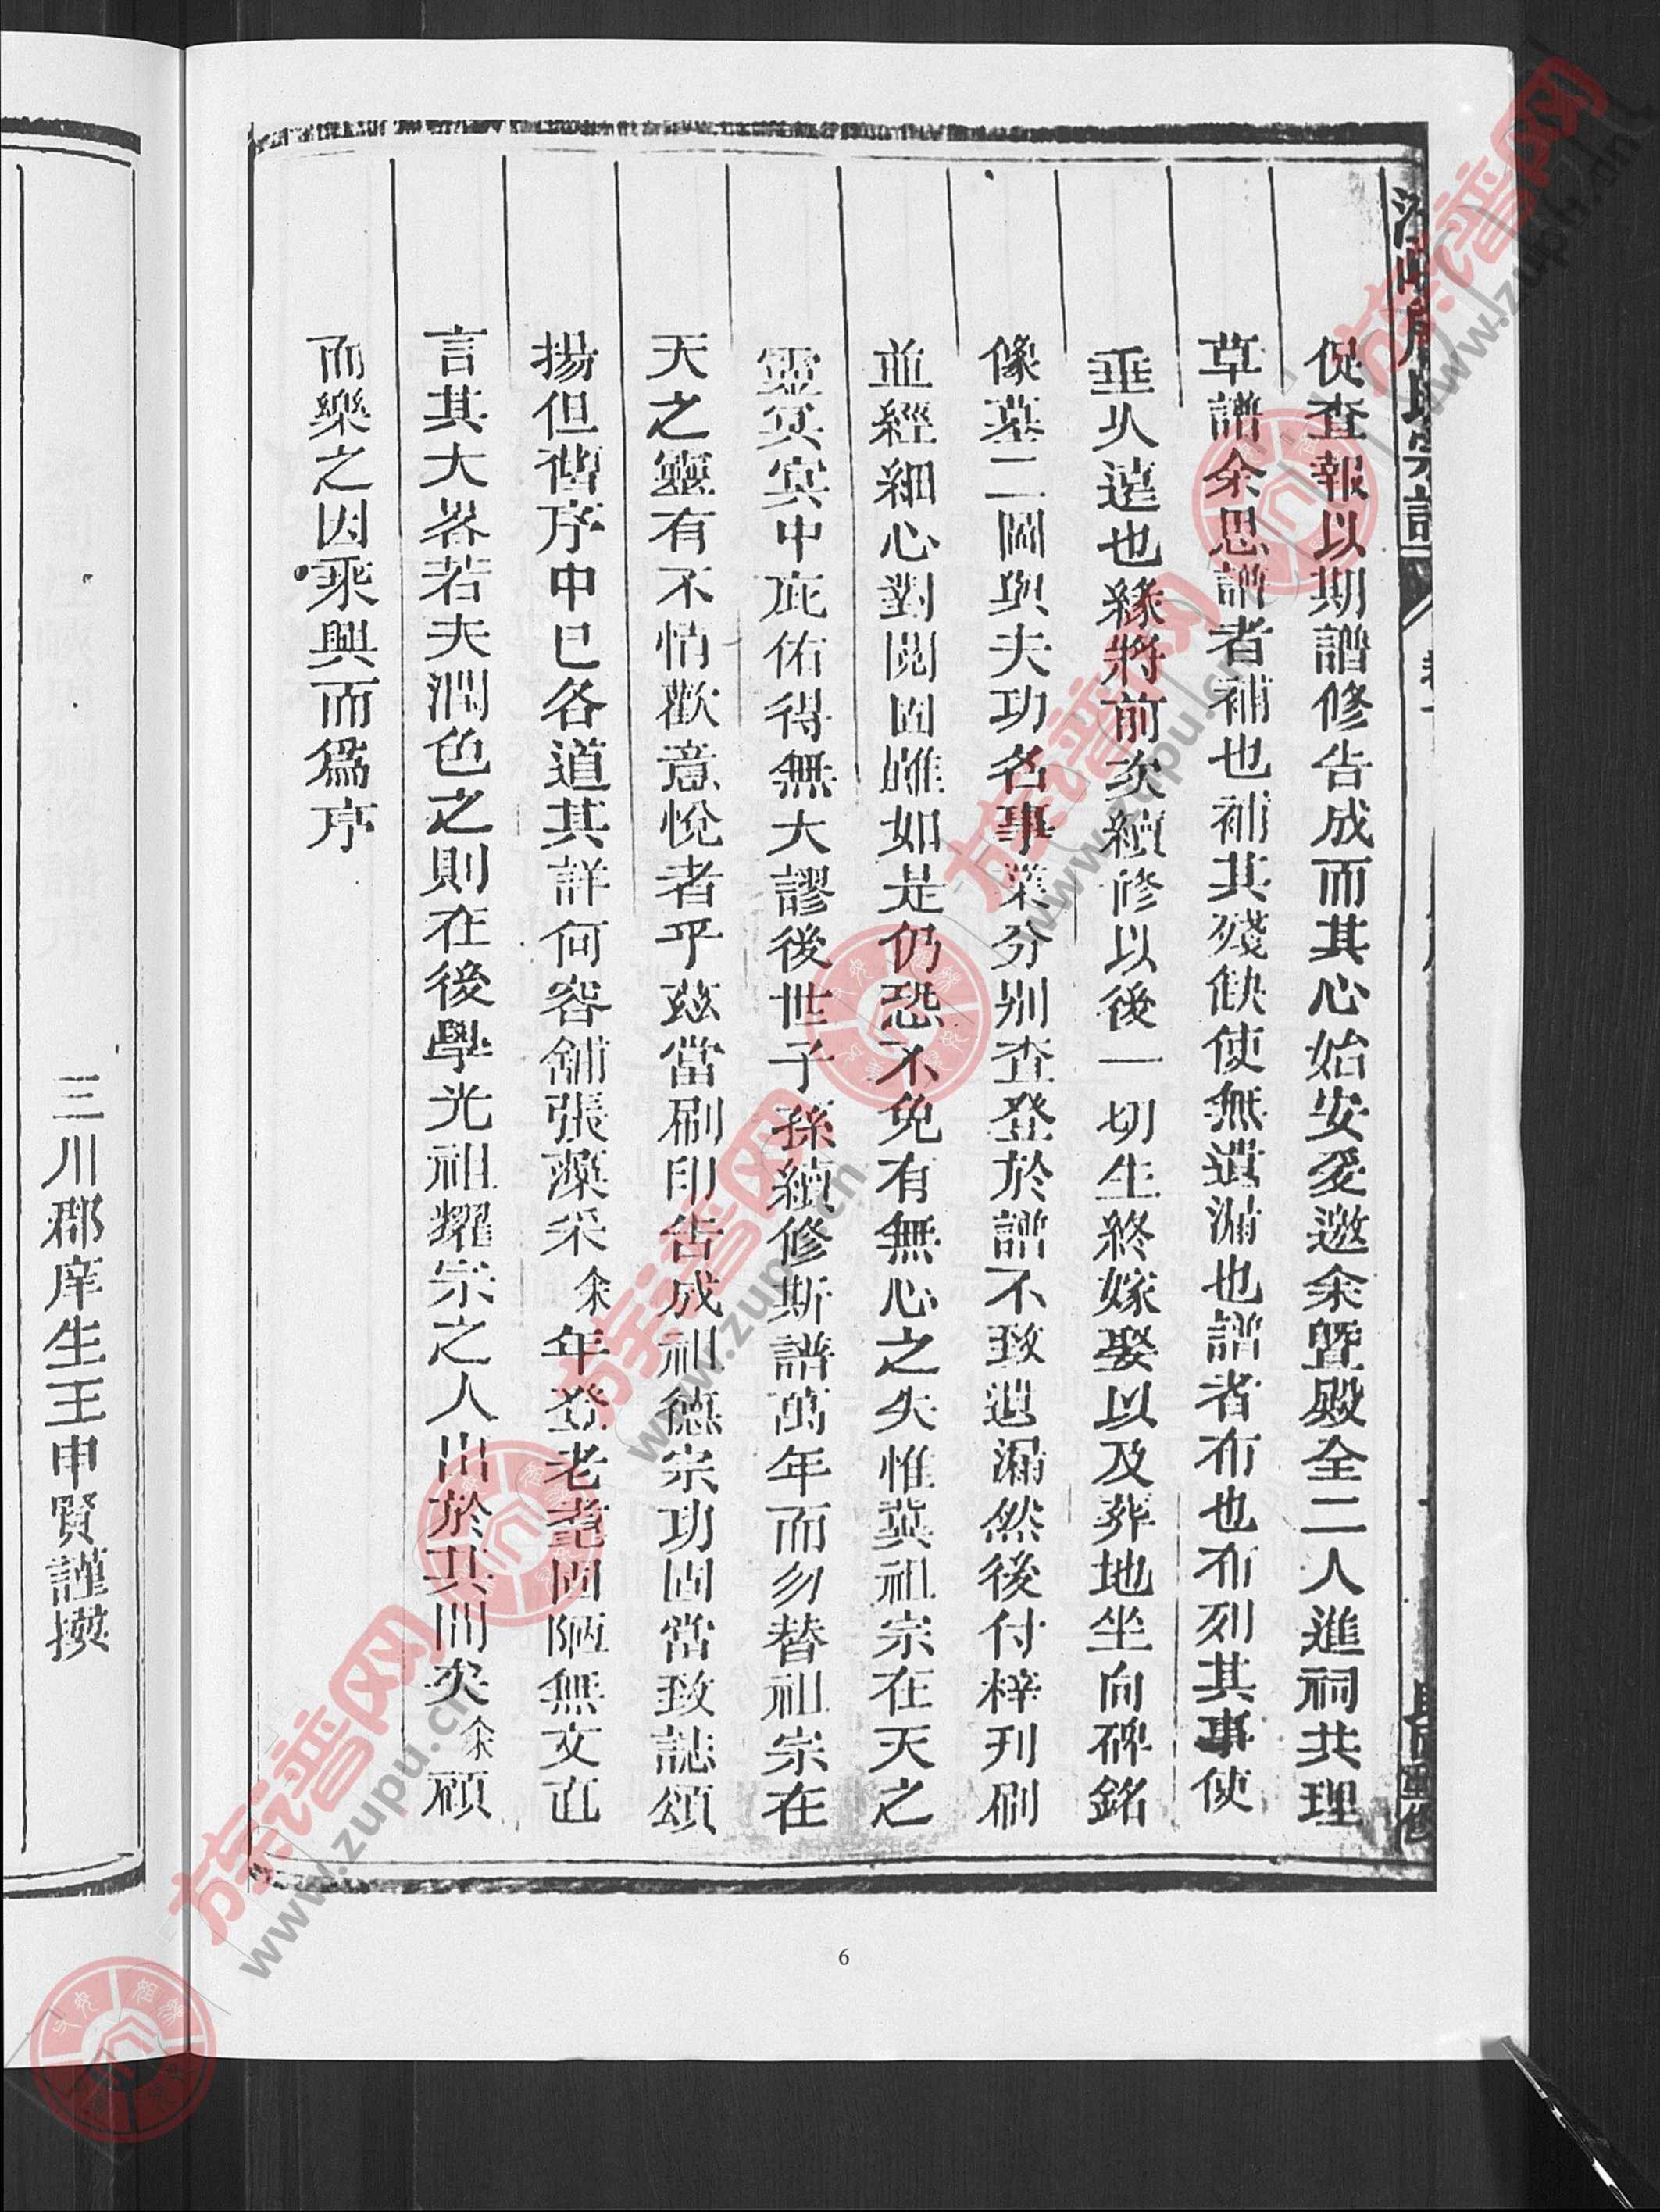 促查報以期譜修告成而其心始安爰邀余暨殿全二人進祠共理
草譜余思譜者補也補其殘缺使無遺漏也譜者布也布列其事使
垂久遠也緣將前次續修以後一切生終嫁娶以及葬地坐向碑銘
像墓二圖與夫功名事業分別查登於譜不致遺漏然後付梓刊刷
並經細心對閱固雖如是仍恐不免有無心之失惟冀祖宗在天之
靈冥冥中庇佑得無大謬後世子孫續修斯譜萬年而勿替祖宗在
天之靈有不情歡意悅者乎茲當刷印告成祖德宗功固當致誌頌
揚但舊序中已各道其詳何容舖張藻采余年登老耄固陋無文直
言其大畧若夫潤色之則在後學光祖耀宗之人出於其間矣余顧
而樂之因乘興而為序
三川郡庠生王申賢謹撰
重修
6
族谱网
www.zupu.cn
族谱网
www.zupu.cn
族谱网
www.zupu.cn
族谱网
www.zupu.cn